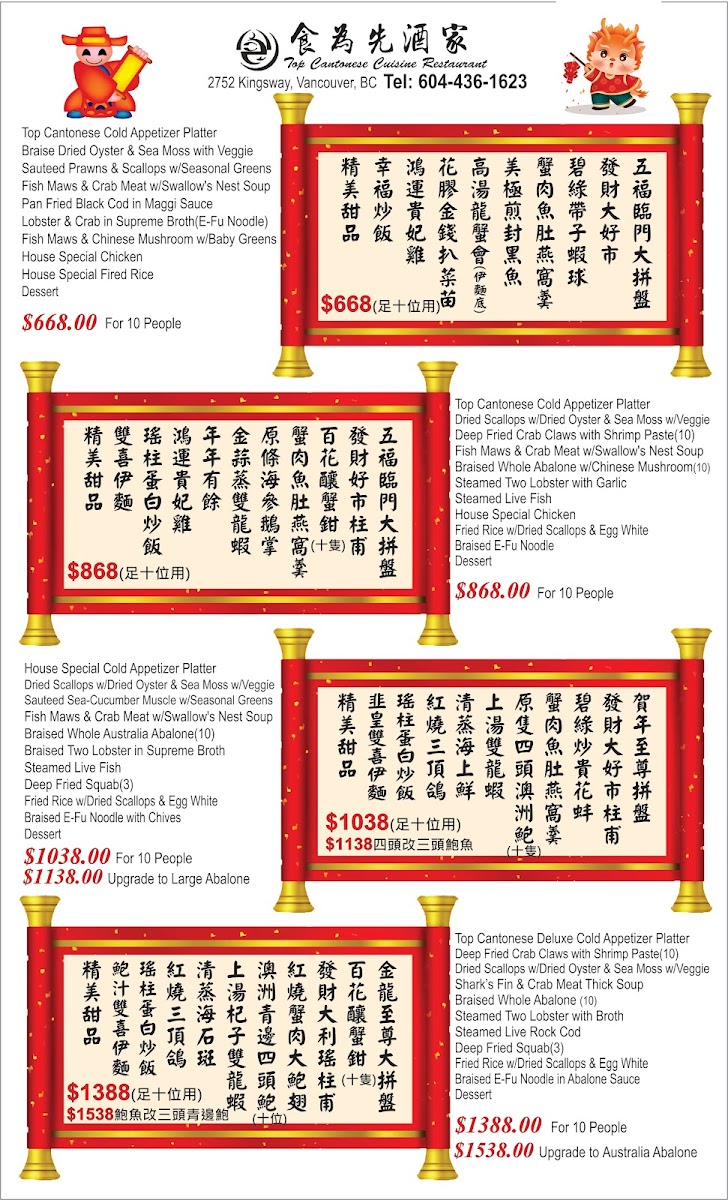 食為先酒家
Top Cantonese Cuisine Restaurant
2752 Kingsway, Vancouver, BC Tel: 604-436-1623
Top Cantonese Cold Appetizer Platter
Braise Dried Oyster & Sea Moss with Veggie
Sauteed Prawns & Scallops w/Seasonal Greens
Fish Maws & Crab Meat w/Swallow's Nest Soup
Pan Fried Black Cod in Maggi Sauce
Lobster & Crab in Supreme Broth(E-Fu Noodle)
Fish Maws & Chinese Mushroom w/Baby Greens
House Special Chicken
House Special Fired Rice
Dessert
$668.00 For 10 People
五福臨門大拼盤
發財大好市
碧綠帶子蝦球
蟹肉魚肚燕窩羹
美極煎封黑魚
高湯龍蟹會(伊麵底)
花膠金錢扒菜苗
鴻運貴妃雞
幸福炒飯
精美甜品
$668(足十位用)
五福臨門大拼盤
發財好市柱甫
百花釀蟹鉗(十隻)
蟹肉魚肚燕窩羹
原條海參鵝掌
金蒜蒸雙龍蝦
年年有餘
鴻運貴妃雞
瑤柱蛋白炒飯
雙喜伊麵
精美甜品
$868(足十位用)
Top Cantonese Cold Appetizer Platter
Dried Scallops w/Dried Oyster & Sea Moss w/Veggie
Deep Fried Crab Claws with Shrimp Paste(10)
Fish Maws & Crab Meat w/Swallow's Nest Soup
Braised Whole Abalone w/Chinese Mushroom(10)
Steamed Two Lobster with Garlic
Steamed Live Fish
House Special Chicken
Fried Rice w/Dried Scallops & Egg White
Braised E-Fu Noodle
Dessert
$868.00 For 10 People
House Special Cold Appetizer Platter
Dried Scallops w/Dried Oyster & Sea Moss w/Veggie
Sauteed Sea-Cucumber Muscle w/Seasonal Greens
Fish Maws & Crab Meat w/Swallow's Nest Soup
Braised Whole Australia Abalone(10)
Braised Two Lobster in Supreme Broth
Steamed Live Fish
Deep Fried Squab(3)
Fried Rice w/Dried Scallops & Egg White
Braised E-Fu Noodle with Chives
Dessert
$1038.00 For 10 People
$1138.00 Upgrade to Large Abalone
賀年至尊拼盤
發財大好市柱甫
碧綠炒貴花蚌
蟹肉魚肚燕窩羹
原隻四頭澳洲鮑(十隻)
上湯雙龍蝦
清蒸海上鮮
紅燒三頂鴿
瑤柱蛋白炒飯
韭皇雙喜伊麵
精美甜品
$1038(足十位用)
$1138四頭改三頭鮑魚
金龍至尊大拼盤
百花釀蟹鉗(十隻)
發財大利瑤柱甫
紅燒蟹肉大鮑翅
澳洲青邊四頭鮑(十位)
上湯杞子雙龍蝦
清蒸海石斑
紅燒三頂鴿
瑤柱蛋白炒飯
鮑汁雙喜伊麵
精美甜品
$1388(足十位用)
$1538鮑魚改三頭青邊鮑
Top Cantonese Deluxe Cold Appetizer Platter
Deep Fried Crab Claws with Shrimp Paste(10)
Dried Scallops w/Dried Oyster & Sea Moss w/Veggie
Shark's Fin & Crab Meat Thick Soup
Braised Whole Abalone (10)
Steamed Two Lobster with Broth
Steamed Live Rock Cod
Deep Fried Squab(3)
Fried Rice w/Dried Scallops & Egg White
Braised E-Fu Noodle in Abalone Sauce
Dessert
$1388.00 For 10 People
$1538.00 Upgrade to Australia Abalone